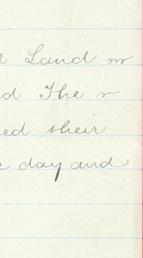 Land
d The
ed their
day and